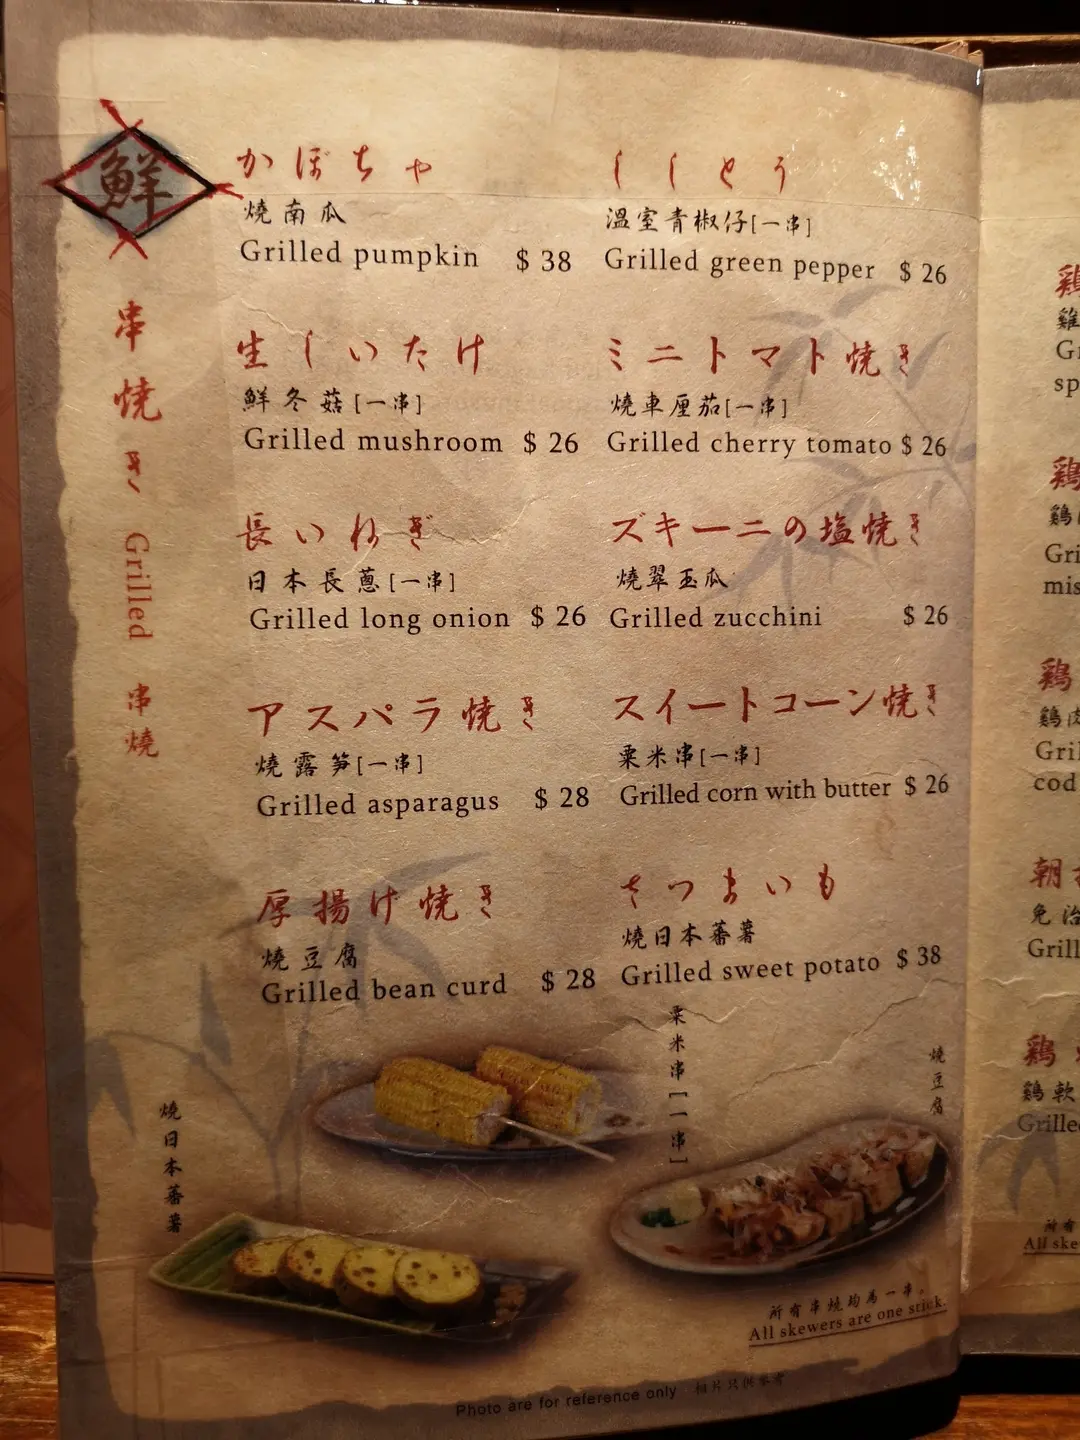 鮮
串焼き Grilled 串燒
かぼちゃ
燒南瓜
Grilled pumpkin $ 38
ししとう
溫室青椒仔[一串]
Grilled green pepper $ 26
生しいたけ
鮮冬菇[一串]
Grilled mushroom $ 26
ミニトマト焼き
燒車厘茄[一串]
Grilled cherry tomato $ 26
長いねぎ
日本長蔥[一串]
Grilled long onion $ 26
ズキーニの塩焼き
燒翠玉瓜
Grilled zucchini $ 26
アスパラ焼き
燒露笋[一串]
Grilled asparagus $ 28
スイートコーン焼き
粟米串[一串]
Grilled corn with butter $ 26
厚揚げ焼き
燒豆腐
Grilled bean curd $ 28
さつまいも
燒日本蕃薯
Grilled sweet potato $ 38
粟米串[一串]
燒豆腐
燒日本蕃薯
所有串燒均為一串。
All skewers are one stick.
Photo are for reference only 相片只供參考
鶏
雞
Gr
sp
鶏
鷄
Gri
mis
鶏
鷄肉
Gril
cod
朝
免治
Grill
鶏
鷄軟
Grille
所有
All ske